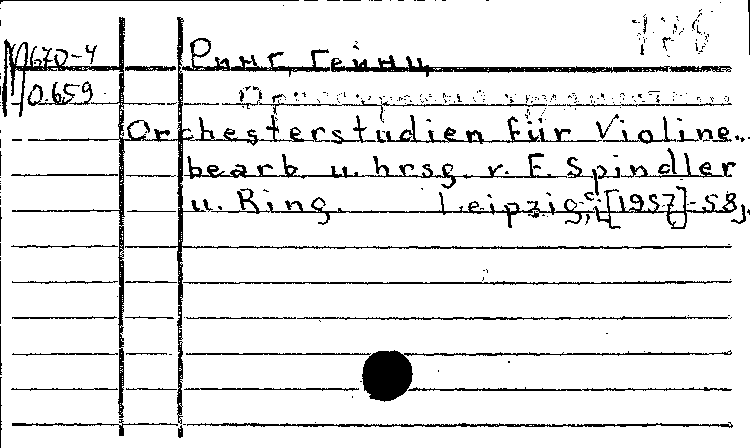 М 670-4
10659
Ринг, Гейнц
Orchesterstudien für Violine..
bearb. u. hrsg. v. F. Spindler
u. Ring. Leipzig, [1957]-58,